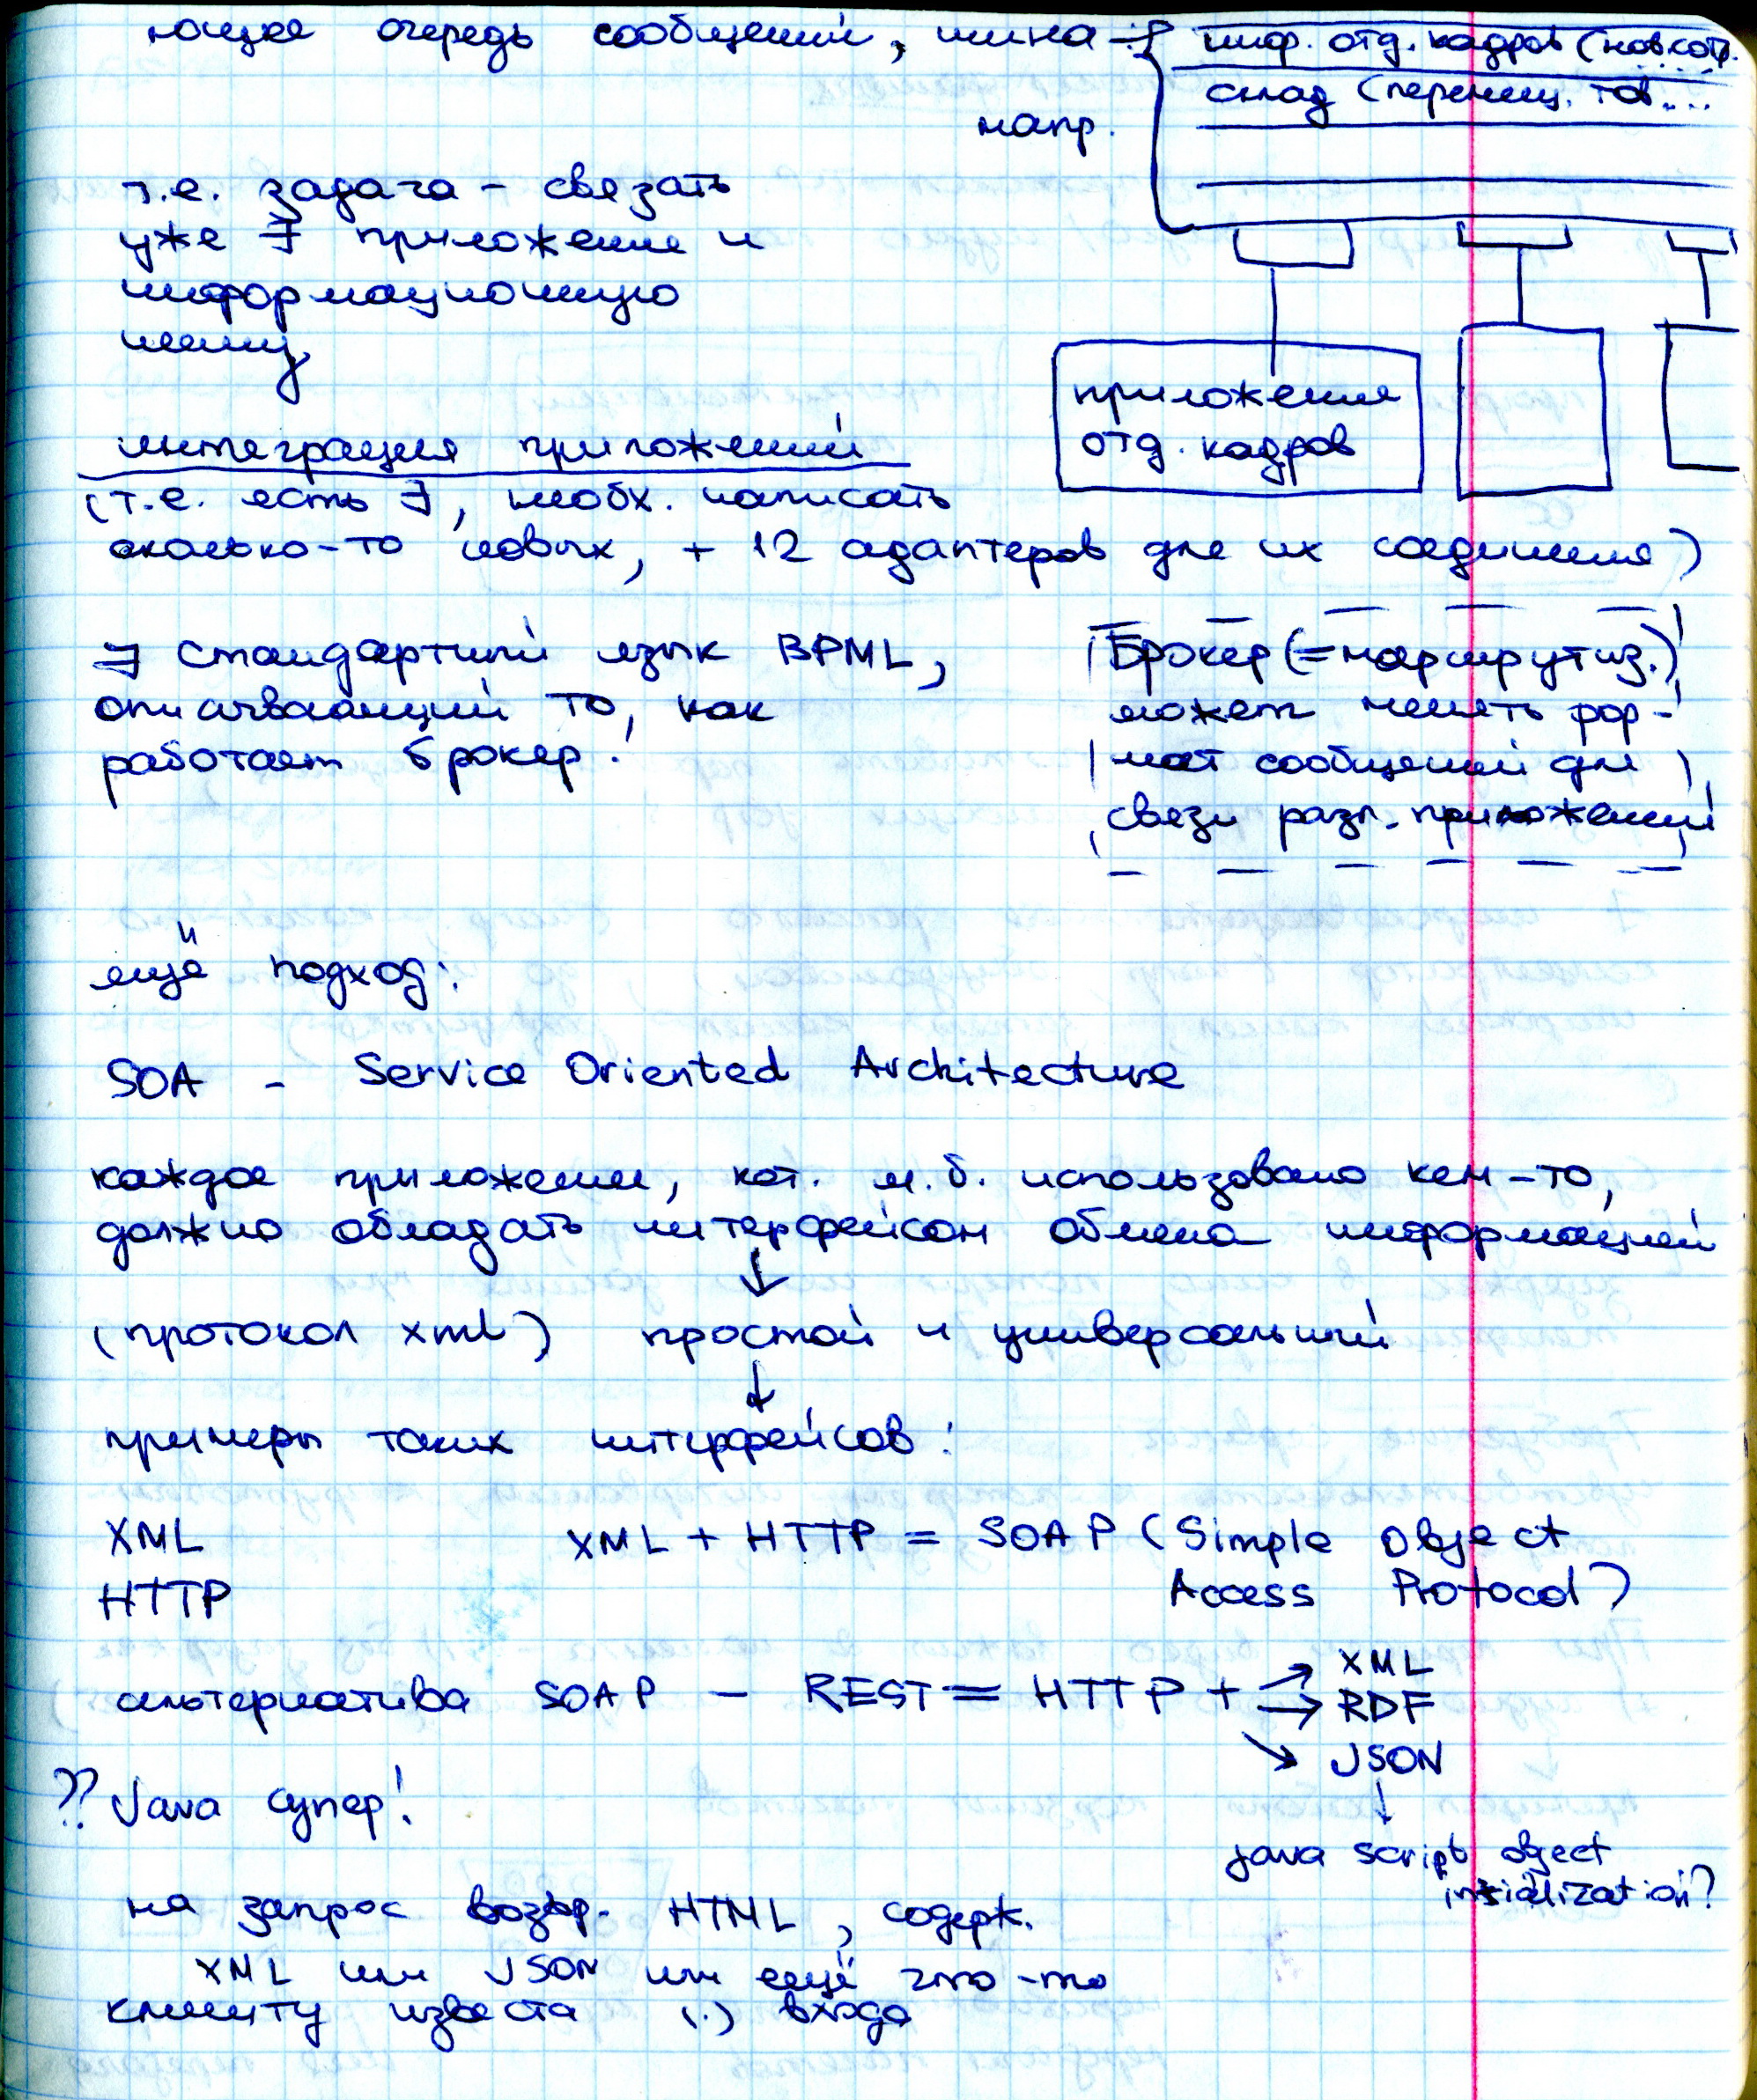 ющее очередь сообщений, шина →
инф. отд. кадров (нов. сотр.
склад (перемещ. тов...
напр.
т.е. задача - связать
уже ∃ приложение и
информационную
шину
приложение
отд. кадров
интеграция приложений
(т.е. есть ∃, необх. написать
сколько-то новых, + 12 адаптеров для их соединения)
∃ стандартный язык BPML,
описывающий то, как
работает брокер!
Брокер (=маршрутиз.)
может менять фор-
мат сообщений для
связи разл. приложений
ещё подход:
SOA - Service Oriented Architecture
каждое приложение, кот. м.б. использовано кем-то,
должно обладать интерфейсом обмена информацией
↓
(протокол xml) простой и универсальный
↓
примеры таких интерфейсов:
XML XML + HTTP = SOAP (Simple Object
HTTP Access Protocol)
альтернатива SOAP - REST = HTTP + → XML
→ RDF
→ JSON
↓
?? Java супер!
java script object
initialization?
на запрос возвр. HTML, содерж.
XML или JSON или ещё что-то
клиенту известа (.) входа